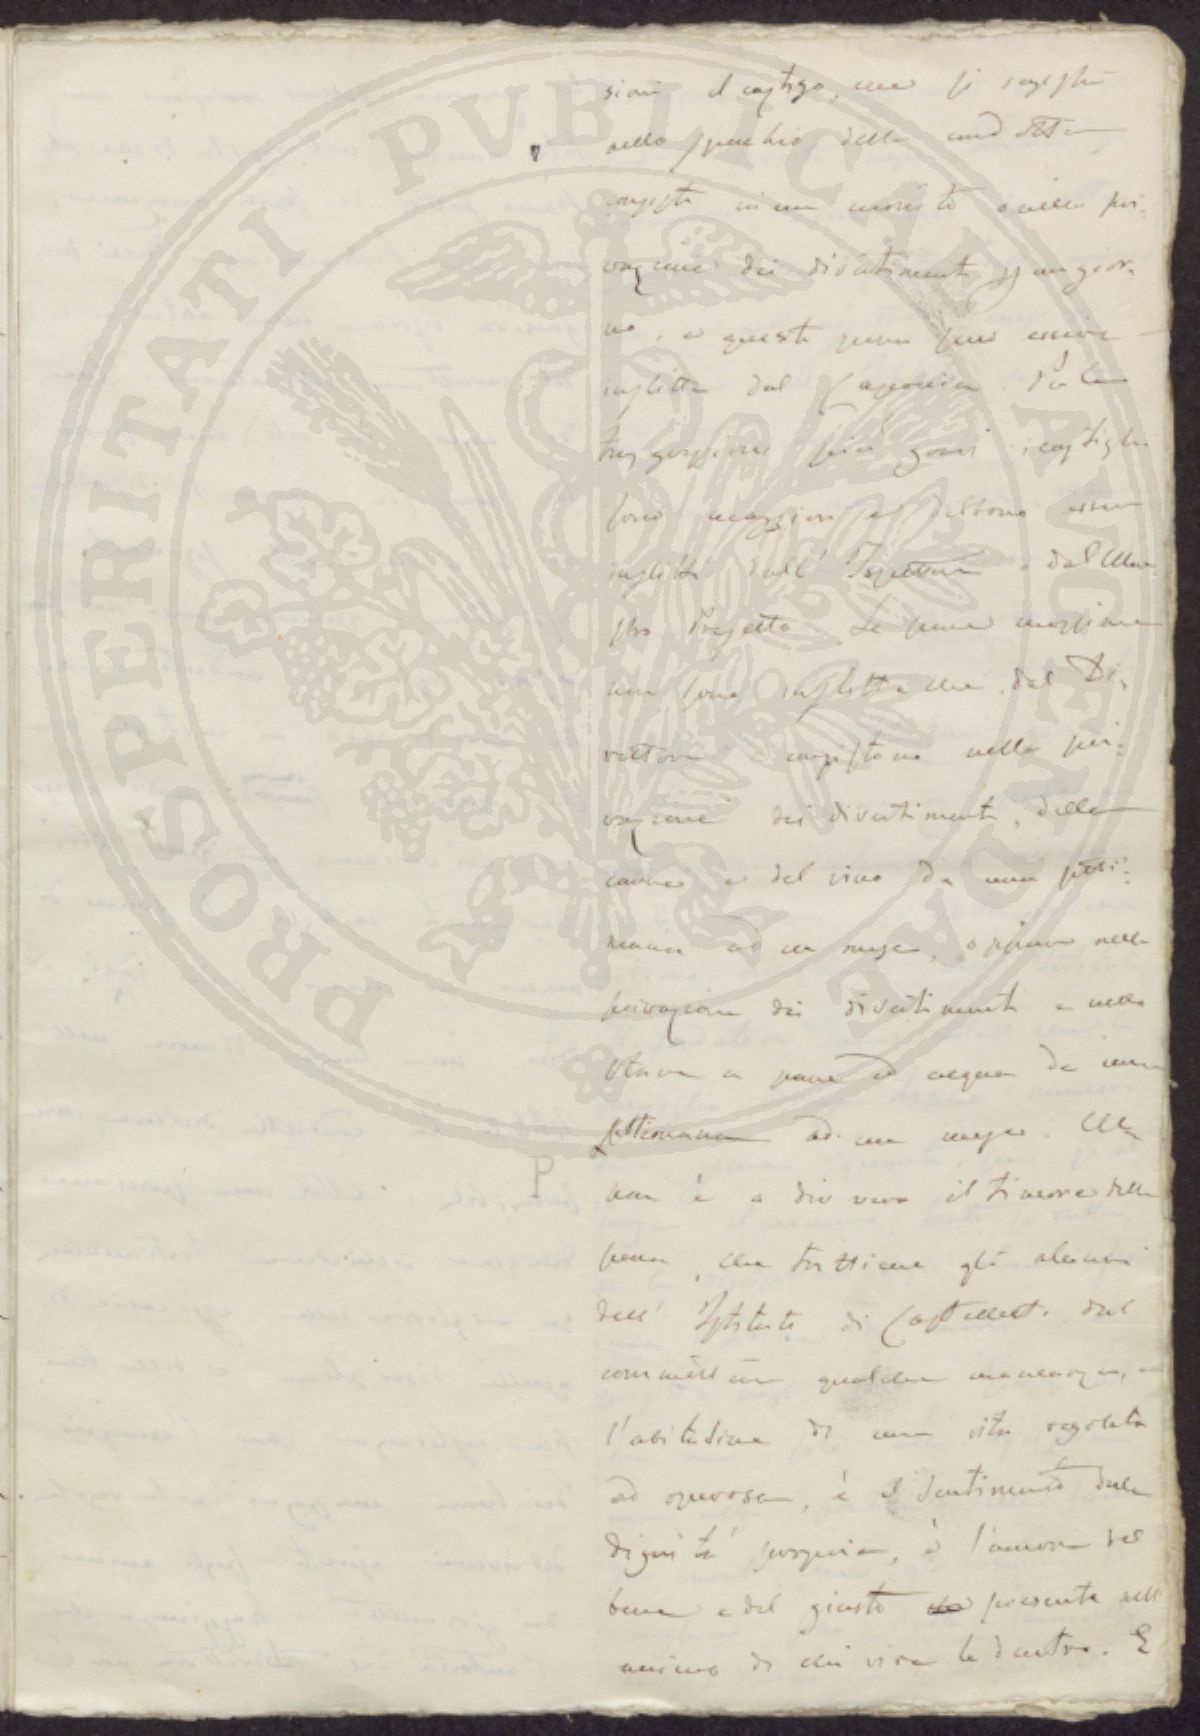 PROSPERITATI PUBLICAE AUGENDAE
sioni il castigo, che si registra
nello specchio della condotta
consiste in un a nella pri-
vazione dei divertimenti per un gior-
no, e questa pena può essere
inflitta dal Caporale. Per le
trasgressioni più gravi i castighi
sono maggiori e debbono esser
inflitti dall' Ispettore o dal Mae-
stro Prefetto. Le pene massime
non sono inflitte che dal Di-
rettore e consistono nella pri-
vazione dei divertimenti, della
carne e del vino da una setti-
mana ad un mese, oppure nella
privazione dei divertimenti e nello
stare a pane ed acqua da una
settimana ad un mese. Ma
non è a dir vero il timore della
pena, che trattiene gli alunni
dell' Istituto di Castelletti dal
commettere qualche mancanza, è
l'abitudine di una vita regolata
ed operosa, è il sentimento della
dignità propria, è l'amore del
bene e del giusto presente nell'
animo di chi vive là dentro. E